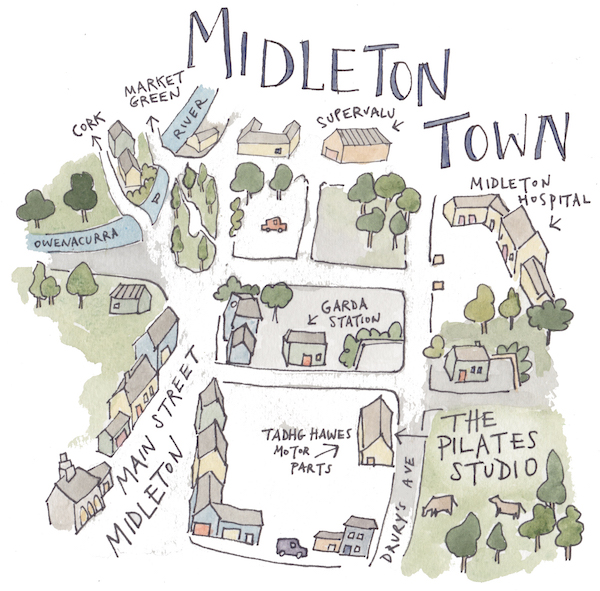 MIDLETON
TOWN
MARKET
GREEN
CORK
RIVER
SUPERVALU
MIDLETON
HOSPITAL
OWENACURRA
GARDA
STATION
MAIN STREET
MIDLETON
TADHG HAWES
MOTOR
PARTS
THE
PILATES
STUDIO
DRURY'S AVE